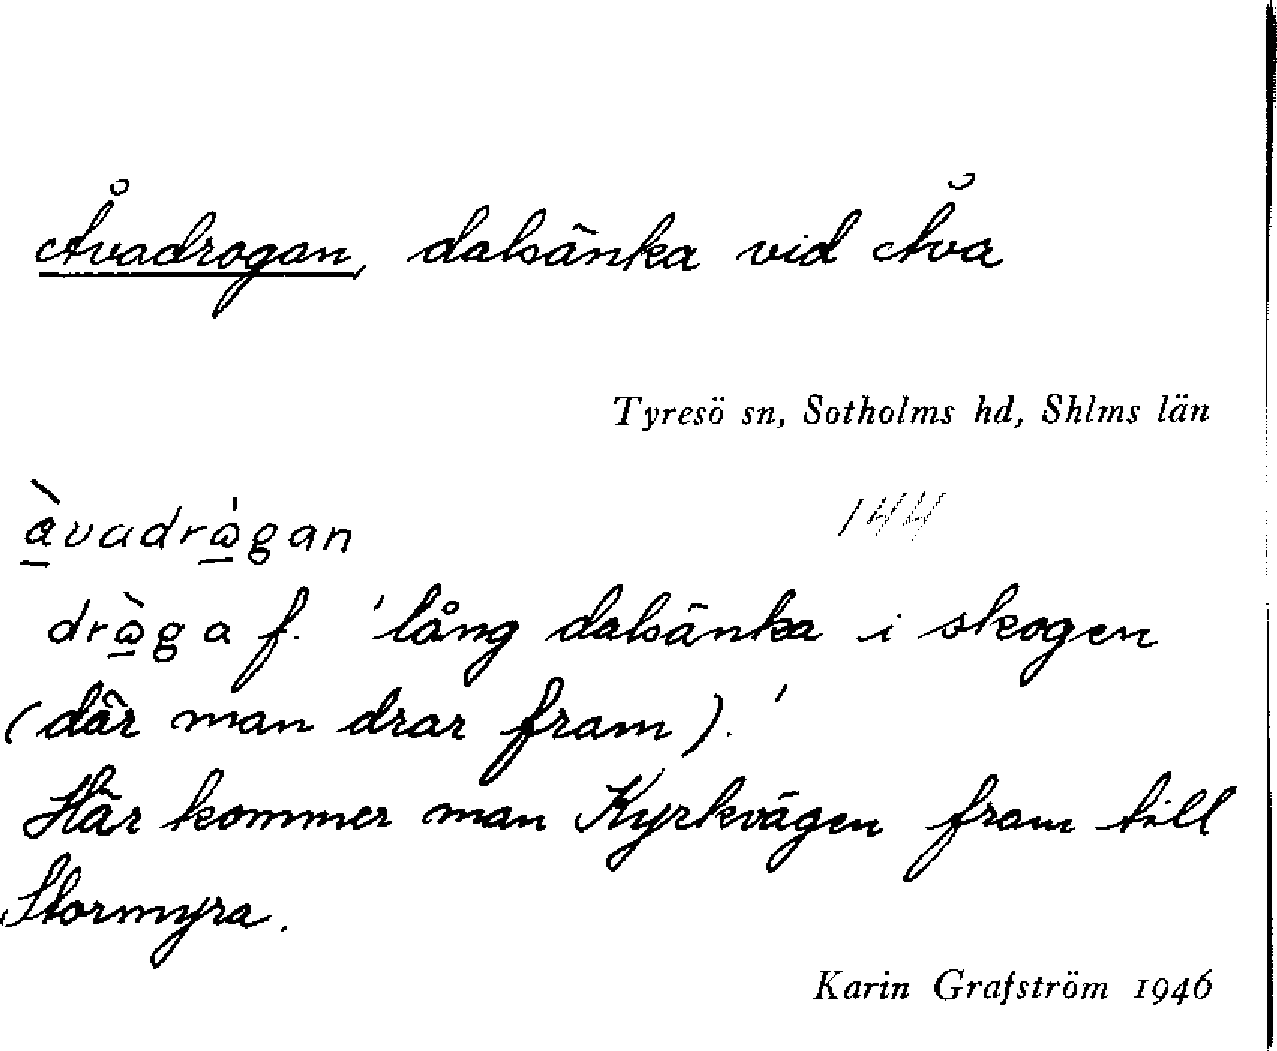 Åvadrogan, dalsänka vid Åva
Tyresö sn, Sotholms hd, Shlms län
àvadrågan
144
dròga f. 'lång dalsänka i skogen
(där man drar fram).'
Här kommer man Kyrkvägen fram till
Stormyra.
Karin Grafström 1946